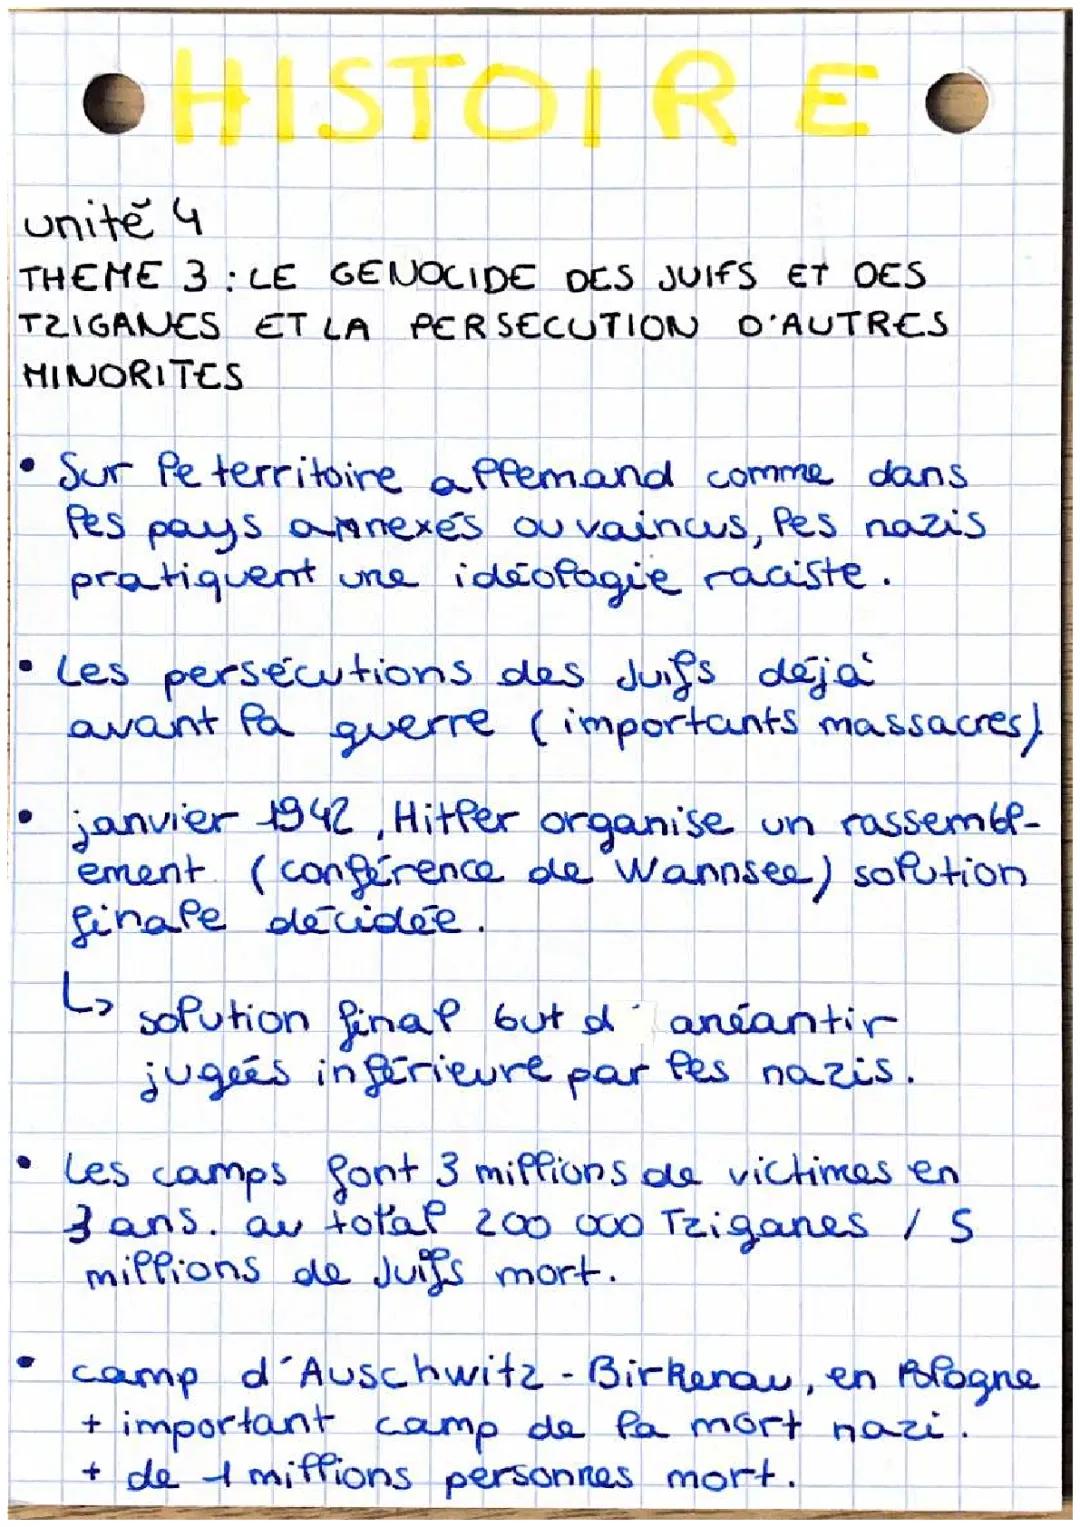 HISTOIRE
unité 4
THEME 3 : LE GENOCIDE DES JUIFS ET DES
TZIGANES ET LA PERSECUTION D'AUTRES
MINORITES
• Sur le territoire allemand comme dans
les pays annexés ou vaincus, les nazis
pratiquent une idéologie raciste.
• Les persécutions des Juifs déjà
avant la guerre (importants massacres)
• janvier 1942, Hitler organise un rassembl-
ement (conférence de Wannsee) solution
finale décidée.
↳ solution final but d' anéantir
jugées inférieure par les nazis.
• Les camps font 3 millions de victimes en
3 ans. au total 200 000 Tziganes / 5
millions de Juifs mort.
• camp d'Auschwitz - Birkenau, en Pologne
+ important camp de la mort nazi.
+ de 1 millions personnes mort.